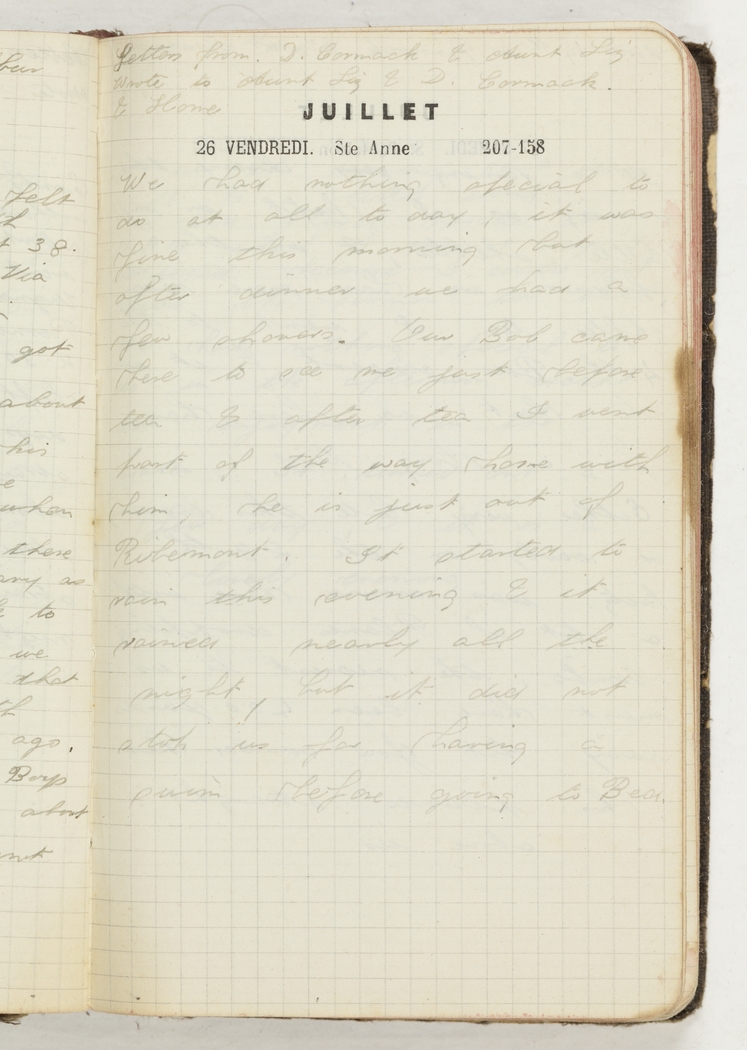 Letters from. D. Cormack & Aunt Liz
wrote to Aunt Liz & D. Cormack.
& Home
JUILLET
26 VENDREDI. Ste Anne 207-158
We had nothing special to
do at all to day; it was
fine this morning but
after dinner we had a
few showers. Our Bob came
here to see me just before
tea & after tea I went
part of the way home with
him, he is just out of
Ribemont. It started to
rain this evening & it
rained nearly all the
night, but it did not
us for having a
swim before going to Bed.
felt
t 38.
Via
got
about
his
when
there
as
to
we
that
ago.
Boys
about